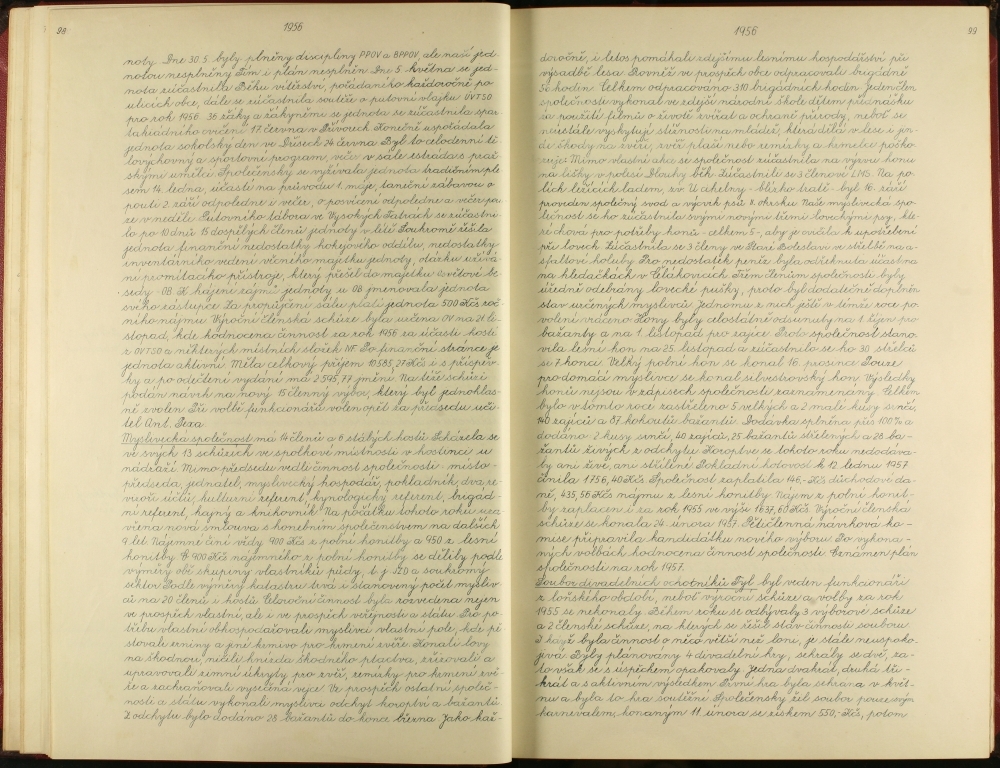 98
1956
noty. Dne 30.5. byly plněny discipliny PPOV a BPPOV, ale naší jed-
notou nesplněny. Tím i plán nesplněn. Dne 5. května se jed-
nota zúčastnila Běhu vítězství, pořádaného každoročně po
ulicích obce, dále se zúčastnila soutěže o putovní vlajku ÚVTSO
pro rok 1956. 36 žáky a žákyněmi se jednota se zúčastnila spar-
takiadního cvičení 17. června v Přívorech. Konečně uspořádala
jednota sokolský den ve Dřísech 24. června. Byl to celodenní tě-
lovýchovný a sportovní program, večer v sále estráda s praž-
skými umělci. Společensky se vyžívala jednota tradičním ple-
sem 14. ledna, účastí na průvodu 1. máje, taneční zábavou o
pouti 2. září odpoledne i večer, o posvícení odpoledne a večer pou-
ze v neděli. Putovního tábora ve Vysokých Tatrách se zúčastni-
lo po 10 dnů 15 dospělých členů jednoty v létě. Soukromě řešila
jednota finanční nedostatky hokejového oddílu, nedostatky
inventárního vedení věcného majetku jednoty, otázku užívá-
ní promítacího přístroje, který přešel do majetku osvětové be-
sedy - OB. K hájení zájmů jednoty u OB jmenovala jednota
svého zástupce. Za propůjčení sálu platí jednota 500 Kčs roč-
ního nájmu. Výroční členská schůze byla určena OV na 21. li-
stopad, kde hodnocena činnost za rok 1956 za účasti hostí
z OVTSO a některých místních složek NF. Po finanční stránce je
jednota aktivní. Měla celkový příjem 10585,27 Kčs i s příspěv-
ky a po odečtení vydání má 2595,77 jmění. Na téže schůzi
podán návrh na nový 15 členný výbor, který byl jednohlas-
ně zvolen. Při volbě funkcionářů volen opět za předsedu uči-
tel Ant. Pexa.
Myslivecká společnost má 14 členů a 6 stálých hostů. Scházela se
ve svých 13 schůzích ve spolkové místnosti v hostinci u
nádraží. Mimo předsedu vedli činnost společnosti - místo-
předseda, jednatel, myslivecký hospodář, pokladník, dva re-
visoři účtů, kulturní referent, kynologický referent, brigád-
ní referent, hajný a knihovník. Na počátku tohoto roku uza-
vřena nová smlouva s honebním společenstvem na dalších
9 let. Nájemné činí vždy 900 Kčs z polní honitby a 450 z lesní
honitby. O 900 Kčs nájemného z polní honitby se dělily podle
výměry obě skupiny vlastníků půdy, t. j. JZD a soukromý
sektor. Podle výměry katastru trvá i stanovený počet mysliv-
ců na 20 členů i hostů. Celoroční činnost byla rozvedena nejen
ve prospěch vlastní, ale i ve prospěch veřejnosti a státu. Pro po-
třebu vlastní obhospodařovali myslivci vlastní pole, kde pě-
stovali krmivo pro krmení zvěře. Konali lovy
na škodnou, ničili hnízda škodného ptactva, zřizovali a
upravovali zimní úkryty, pro zvěř, remízky pro krmení zvě-
ře a zachraňovali vysečená vejce. Ve prospěch ostatní společ-
nosti a státu vykonali myslivci odchyt koroptví a bažantů.
Z odchytu bylo dodáno 28 bažantů do konce března. Jako kaž-
1956
99
doročně, i letos pomáhali zdejšímu lesnímu hospodářství při
výsadbě lesa. Rovněž ve prospěch obce odpracovali brigádně
50 hodin. Celkem odpracováno 310 brigádních hodin. Jeden člen
společnosti vykonal ve zdejší národní škole dětem přednášku
za použití filmů o životě zvířat a ochraně přírody, neboť se
neustále vyskytují stížnosti na mládež, která dílá v lese i jin-
de škody na zvěři, zvěř plaší nebo remízky a krmelce poško-
zuje. Mimo vlastní akce se společnost zúčastnila na výzvu honu
na lišky v polesí Dlouhý běh. Zúčastnili se 3 členové LMS. Na po-
lích ležících ladem, zv. U cihelny - blízko tratě - byl 16. září
proveden společný svod a výcvik psů 8. okrsku. Naše myslivecká spo-
lečnost se ho zúčastnila svými novými třemi loveckými psy, kte-
ré chová pro potřeby honů - celkem 5 -, aby je cvičila k upotřebení
při lovech. Zúčastnila se 3 členy ve Staré Boleslavi ve střelbě na a-
sfaltové holuby. Pro nedostatek peněz byla odřeknuta účast na
na hledačkách v Čelákovicích. Třem členům společnosti byly
úředně odebrány lovecké pušky, proto byl dodatečně doplněn
stav určených myslivců. Jednomu z nich ještě v témže roce po-
volení vráceno. Hony byly celostátně odsunuty na 1. říjen pro
bažanty a na 1. listopad pro zajíce. Proto společnost stano-
vila lesní hon na 25. listopad a zúčastnilo se ho 30 střelců
se 7 honci. Velký polní hon se konal 16. prosince. Pouze
pro domácí myslivce se konal silvestrovský hon. Výsledky
honů nejsou v zápisech společnosti zaznamenány. Celkem
bylo v tomto roce zastřeleno 5 velkých a 2 malé kusy srnčí,
140 zajíců a 87 kohoutů bažantů. Dodávka splněna přes 100 % a
dodáno 2 kusy srnčí, 40 zajíců, 25 bažantů střílených a 28 ba-
žantů živých z odchytu. Koroptve se tohoto roku nedodáva-
ly ani živé, ani střílené. Pokladní hotovost k 12. lednu 1957
činila 1756,40 Kčs. Společnost zaplatila 146,- Kčs důchodové da-
ně, 435,56 Kčs nájmu z lesní honitby. Nájem z polní honit-
by zaplacen i za rok 1955 ve výši 1637,60 Kčs. Výroční členská
schůze se konala 24. února 1957. Pětičlenná návrhová ko-
mise připravila kandidátku nového výboru. Po vykona-
ných volbách hodnocena činnost společnosti. Oznámen plán
společnosti na rok 1957.
Soubor divadelních ochotníků Tyl byl veden funkcionáři
z loňského období, neboť výroční schůze a volby za rok
1955 se nekonaly. Během roku se odbývaly 3 výborové schůze
a 2 členské schůze, na kterých se řešil stav činnosti souboru.
I když byla činnost o něco větší než loni, je stále neuspoko-
jivá. Byly plánovány 4 divadelní hry, sehrály se dvě, za-
to však se s úspěchem opakovaly. Jedna dvakrát, druhá tři-
krát a s aktivním výsledkem. První hra byla sehrána v květ-
nu a byla to hra soutěžní. Společensky žil soubor pouze svým
karnevalem, konaným 11. února se ziskem 550,- Kčs, potom